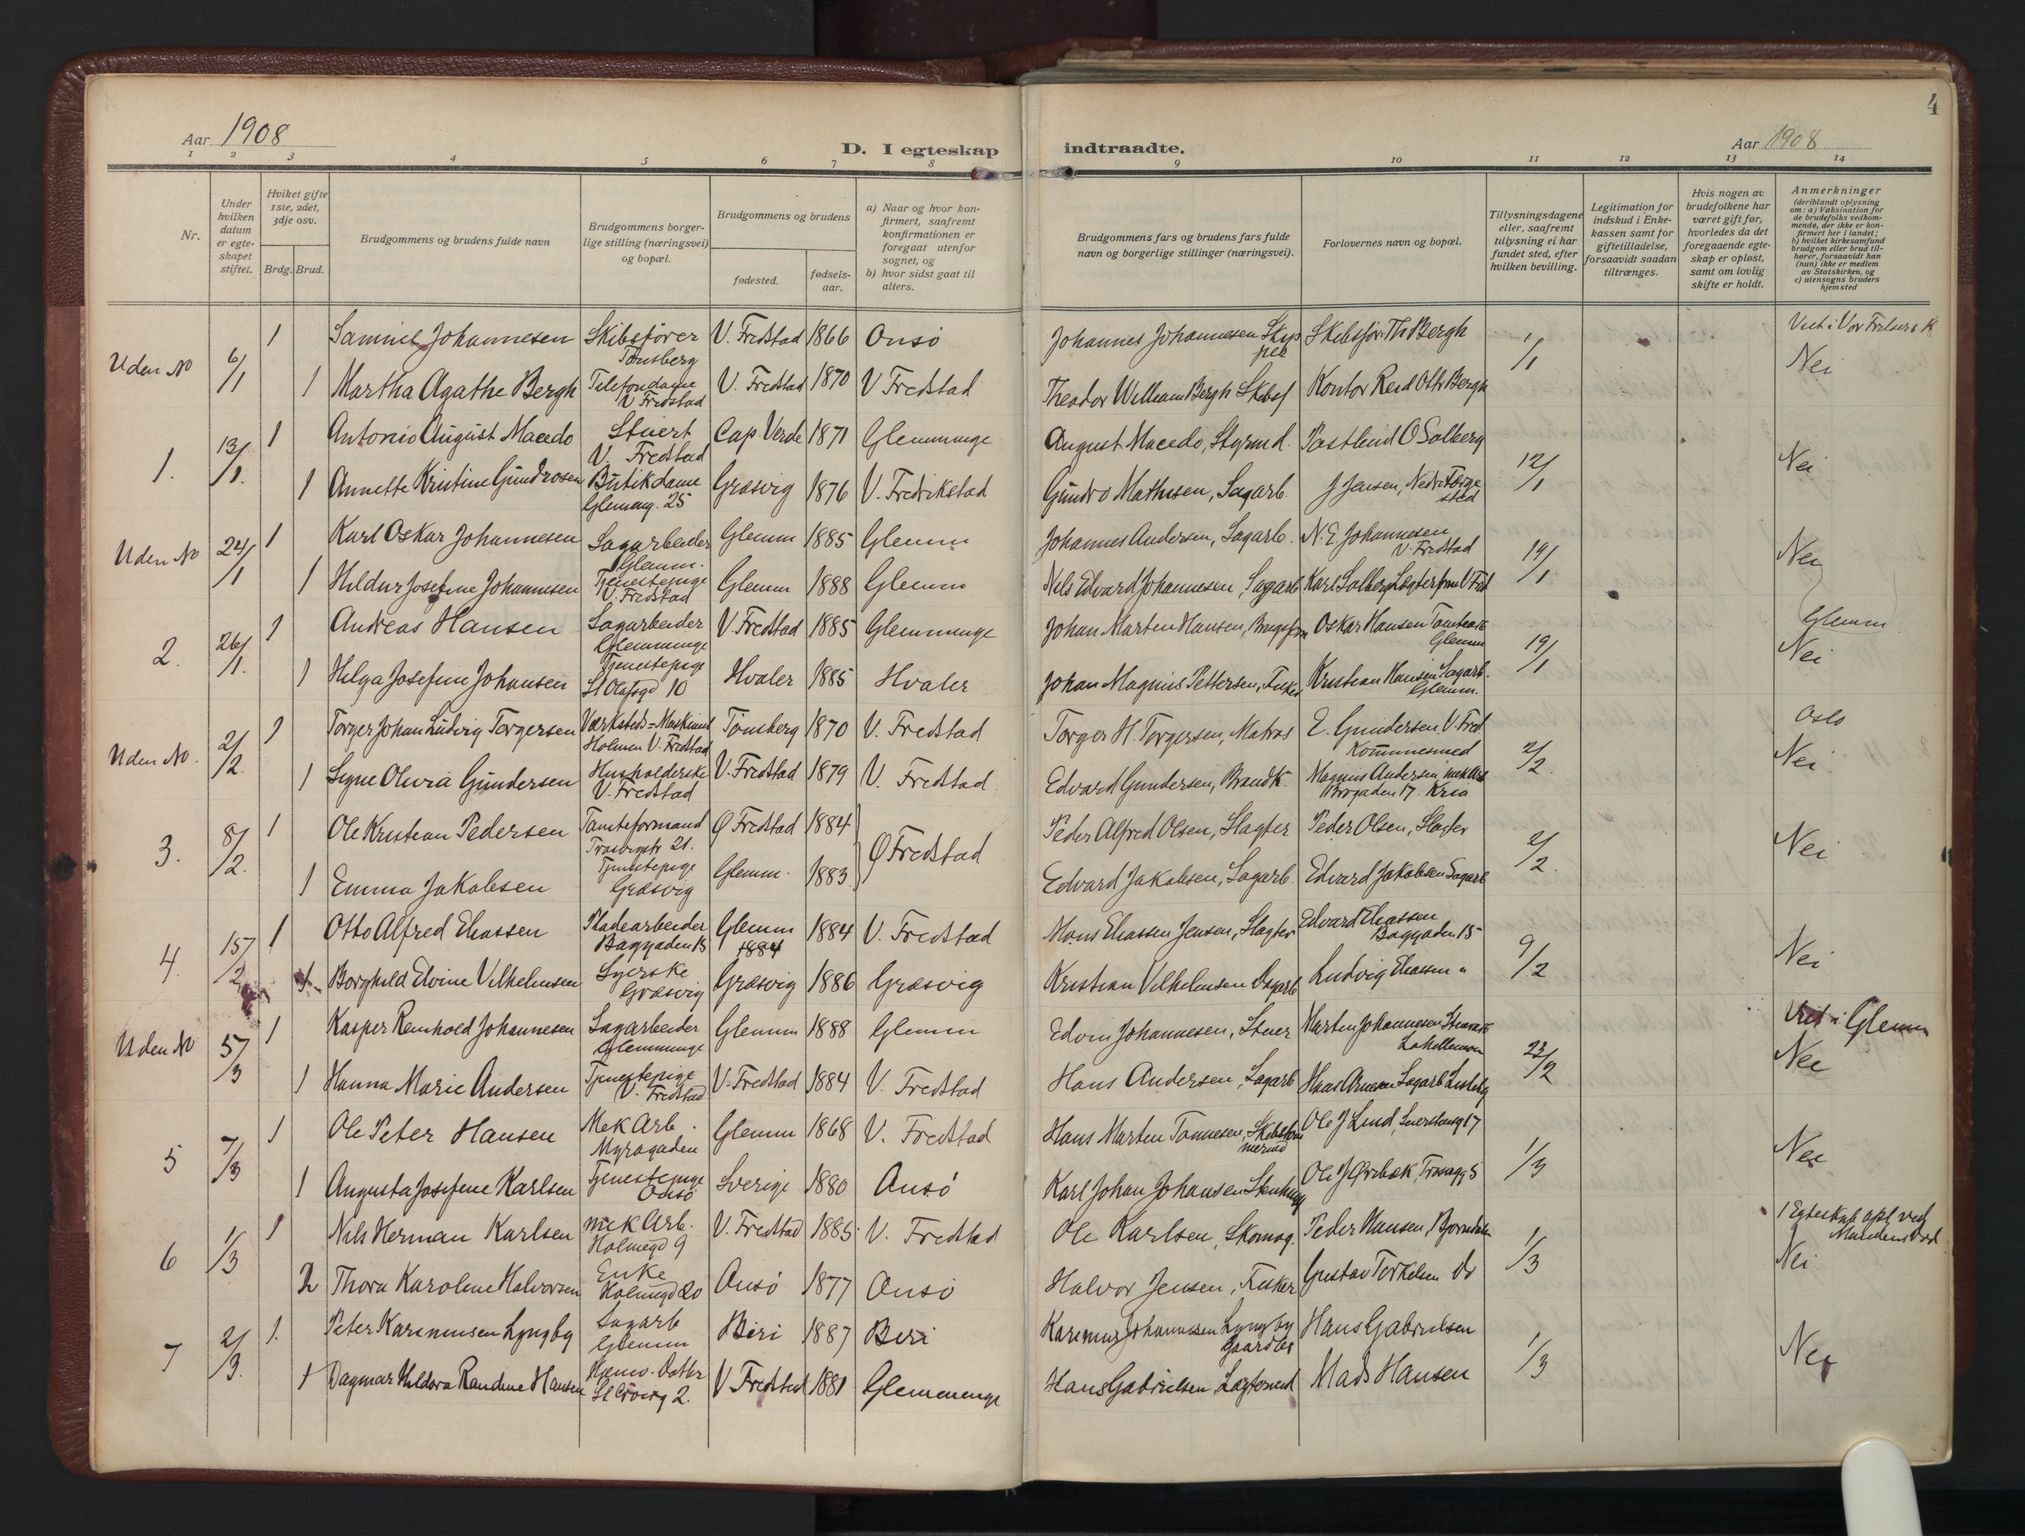 4
Aar 1908
D. I egteskap indtraadte.
Aar 1908
1 2 3 4 5 6 7 8 9 10 11 12 13 14
Nr.
Under hvilken datum er egteskapet stiftet.
Hviket gifte 1ste, 2det, 3dje osv.
Brdg. Brud.
Brudgommens og brudens fulde navn
Brudgommens borgerlige stilling (næringsvei) og bopæl.
Brudgommens og brudens
fødested.
fødselsaar.
a) Naar og hvor konfirmert, saafremt konfirmationen er foregaat utenfor sognet, og
b) hvor sidst gaat til alters.
Brudgommens fars og brudens fars fulde navn og borgerlige stillinger (næringsvei).
Forlovernes navn og bopæl.
Tillysningsdagene eller, saafremt tillysning ei har fundet sted, efter hvilken bevilling.
Legitimation for indskud i Enkekassen samt for giftetilladelse, forsaavidt saadan tiltrænges.
Hvis nogen av brudefolkene har været gift før, hvorledes da det foregaaende egteskap er opløst, samt om lovlig skifte er holdt.
Anmerkninger (deriblandt oplysning om: a) Vaksination for de brudefolks vedkommende, der ikke er konfirmert her i landet; b) hvilket kirkesamfund brudgom eller brud tilhører, forsaavidt han (hun) ikke er medlem av Statskirken, og c) utensogns bruders hjemsted
Uden No 6/1 1 Samuel Johannesen Skibsfører Tønsberg V. Fredstad 1866 Onsö Johannes Johannesen Skipper Skibsfør. Th Bergh 1/1 Viet i Vor Frelsers K
1 Martha Agathe Bergh Telefondame V Fredstad V. Fredstad 1870 V Fredstad Theodor William Bergh Skibsf Kontor Otto Bergh Nei
1. 13/1 1 Antonio August Macedo Stuert V. Fredstad Cap Verde 1871 Glemminge August Macedo, Styrmd. O Solberg 12/1 Nei
1 Annette Kristine Gundrosen Butikdame Glemmg. 25 Græsvig 1876 V. Fredrikstad Gundro Mathisen, Sagarb. J Jensen, Nedre Færgested
Uden No 24/1 1 Karl Oskar Johannesen Sagarbeider Glemm. Glemm 1885 Glemm Johannes Andersen, Sagarb. N. E. Johannesen V. Fredstad 19/1 Nei
1 Hildur Josefine Johannesen Tjenestepige V. Fredstad Glemm 1888 Glemm Nils Edvard Johannesen, Sagarb Karl Solberg V Fred
2. 26/1. 1 Andreas Hansen Sagarbeider Glemminge V. Fredstad 1885 Glemminge Johan Marten Hansen, Oskar Hansen Glemm 19/1 Glemm
1 Helga Josefine Johansen Tjenestepige St Olafsgd 10 Hvaler 1885 Hvaler Johan Magnus Pettersen, Fisker Kristian Hansen Sagarb. Glemm. Nei
Uden No. 2/2. 1 Torger Johan Ludvig Torgersen Værksteds-Maskinist Holmen V. Fredstad Tønsberg 1870 V. Fredstad Torger H. Torgersen, Matros E. Gundersen V. Fred 2/2. Oslo
1 Signe Olivia Gundersen Husholderske V. Fredstad V. Fredstad 1879 V. Fredstad. Edvard Gundersen, Brandk. Magnus Andersen mek Arb 17. Kria Nei
3. 8/2. 1 Ole Kristian Pedersen Tomteformand Trosvigstr 21. Ø Fredstad 1884 Ø Fredstad Peder Alfred Olsen, Slagter Peder Olsen, Slagter 2/2. Nei
1 Emma Jakobsen Tjenestepige Græsvig Glemm. 1883 Edvard Jakobsen, Sagarb. Edvard Jakobsen Sagarb
4. 15/2 1 Otto Alfred Eliassen Pladearbeider Baggaden 15 Glemm 1884 1884 V. Fredstad Mons Eliassen Jensen, Slagter Edvard Eliassen Baggaden 15 9/2 Nei
1. Borghild Elvine Vilhelmsen Syerske Græsvig Græsvig 1886 Græsvig Kristian Vilhelmsen Dagarb Ludvig Eliassen "
Uden No 5/3 1 Kasper Reinhold Johannesen Sagarbeider Glemminge Glemm 1888 Glemm Edvin Johannesen, Stuer Marten Johannesen 23/2 Viet i Glemm
1 Hanna Marie Andersen Tjenestepige V. Fredstad V. Fredstad 1884 V. Fredstad Hans Andersen, Sagarb Hans Sagarb Nei
5 7/3 1 Ole Peter Hansen Mek Arb. Myragaden Glemm 1868 V. Fredstad Hans Marten Tonnesen, Skibstømmermd Ole J Lund, 17 1/3 Nei
1 Augusta Josefine Karlsen Tjenestepige Onsö Sverige 1880 Onsö Karl Johan Johansen Stenhugg Ole J Ørebæk, 5
6 1/3 1 Nils Herman Karlsen mek Arb. Holmegd 9 V. Fredstad 1885 V. Fredstad Ole Karlsen, Skomag. Peder Hansen, 1/3 1 Egteskab opl ved Mandens Død
2 Thora Karoline Halvorsen Enke Holmegd 20 Onsö 1877 Onsö Halvor Jensen, Fisker Gustav Torkelsen do Nei
7 2/3. 1. Peter Karenusen Lyngby Sagarb Glemm Biri 1887 Biri Karenus Johannessen Lyngby Gaardbr Hans Gabrielsen 1/3 Nei
1 Dagmar Hildora Randine Hansen Hjemv. Datter St Crosrg 2. V Fredstad 1881 Glemminge Hans Gabrielsen, Hans Mads Hansen